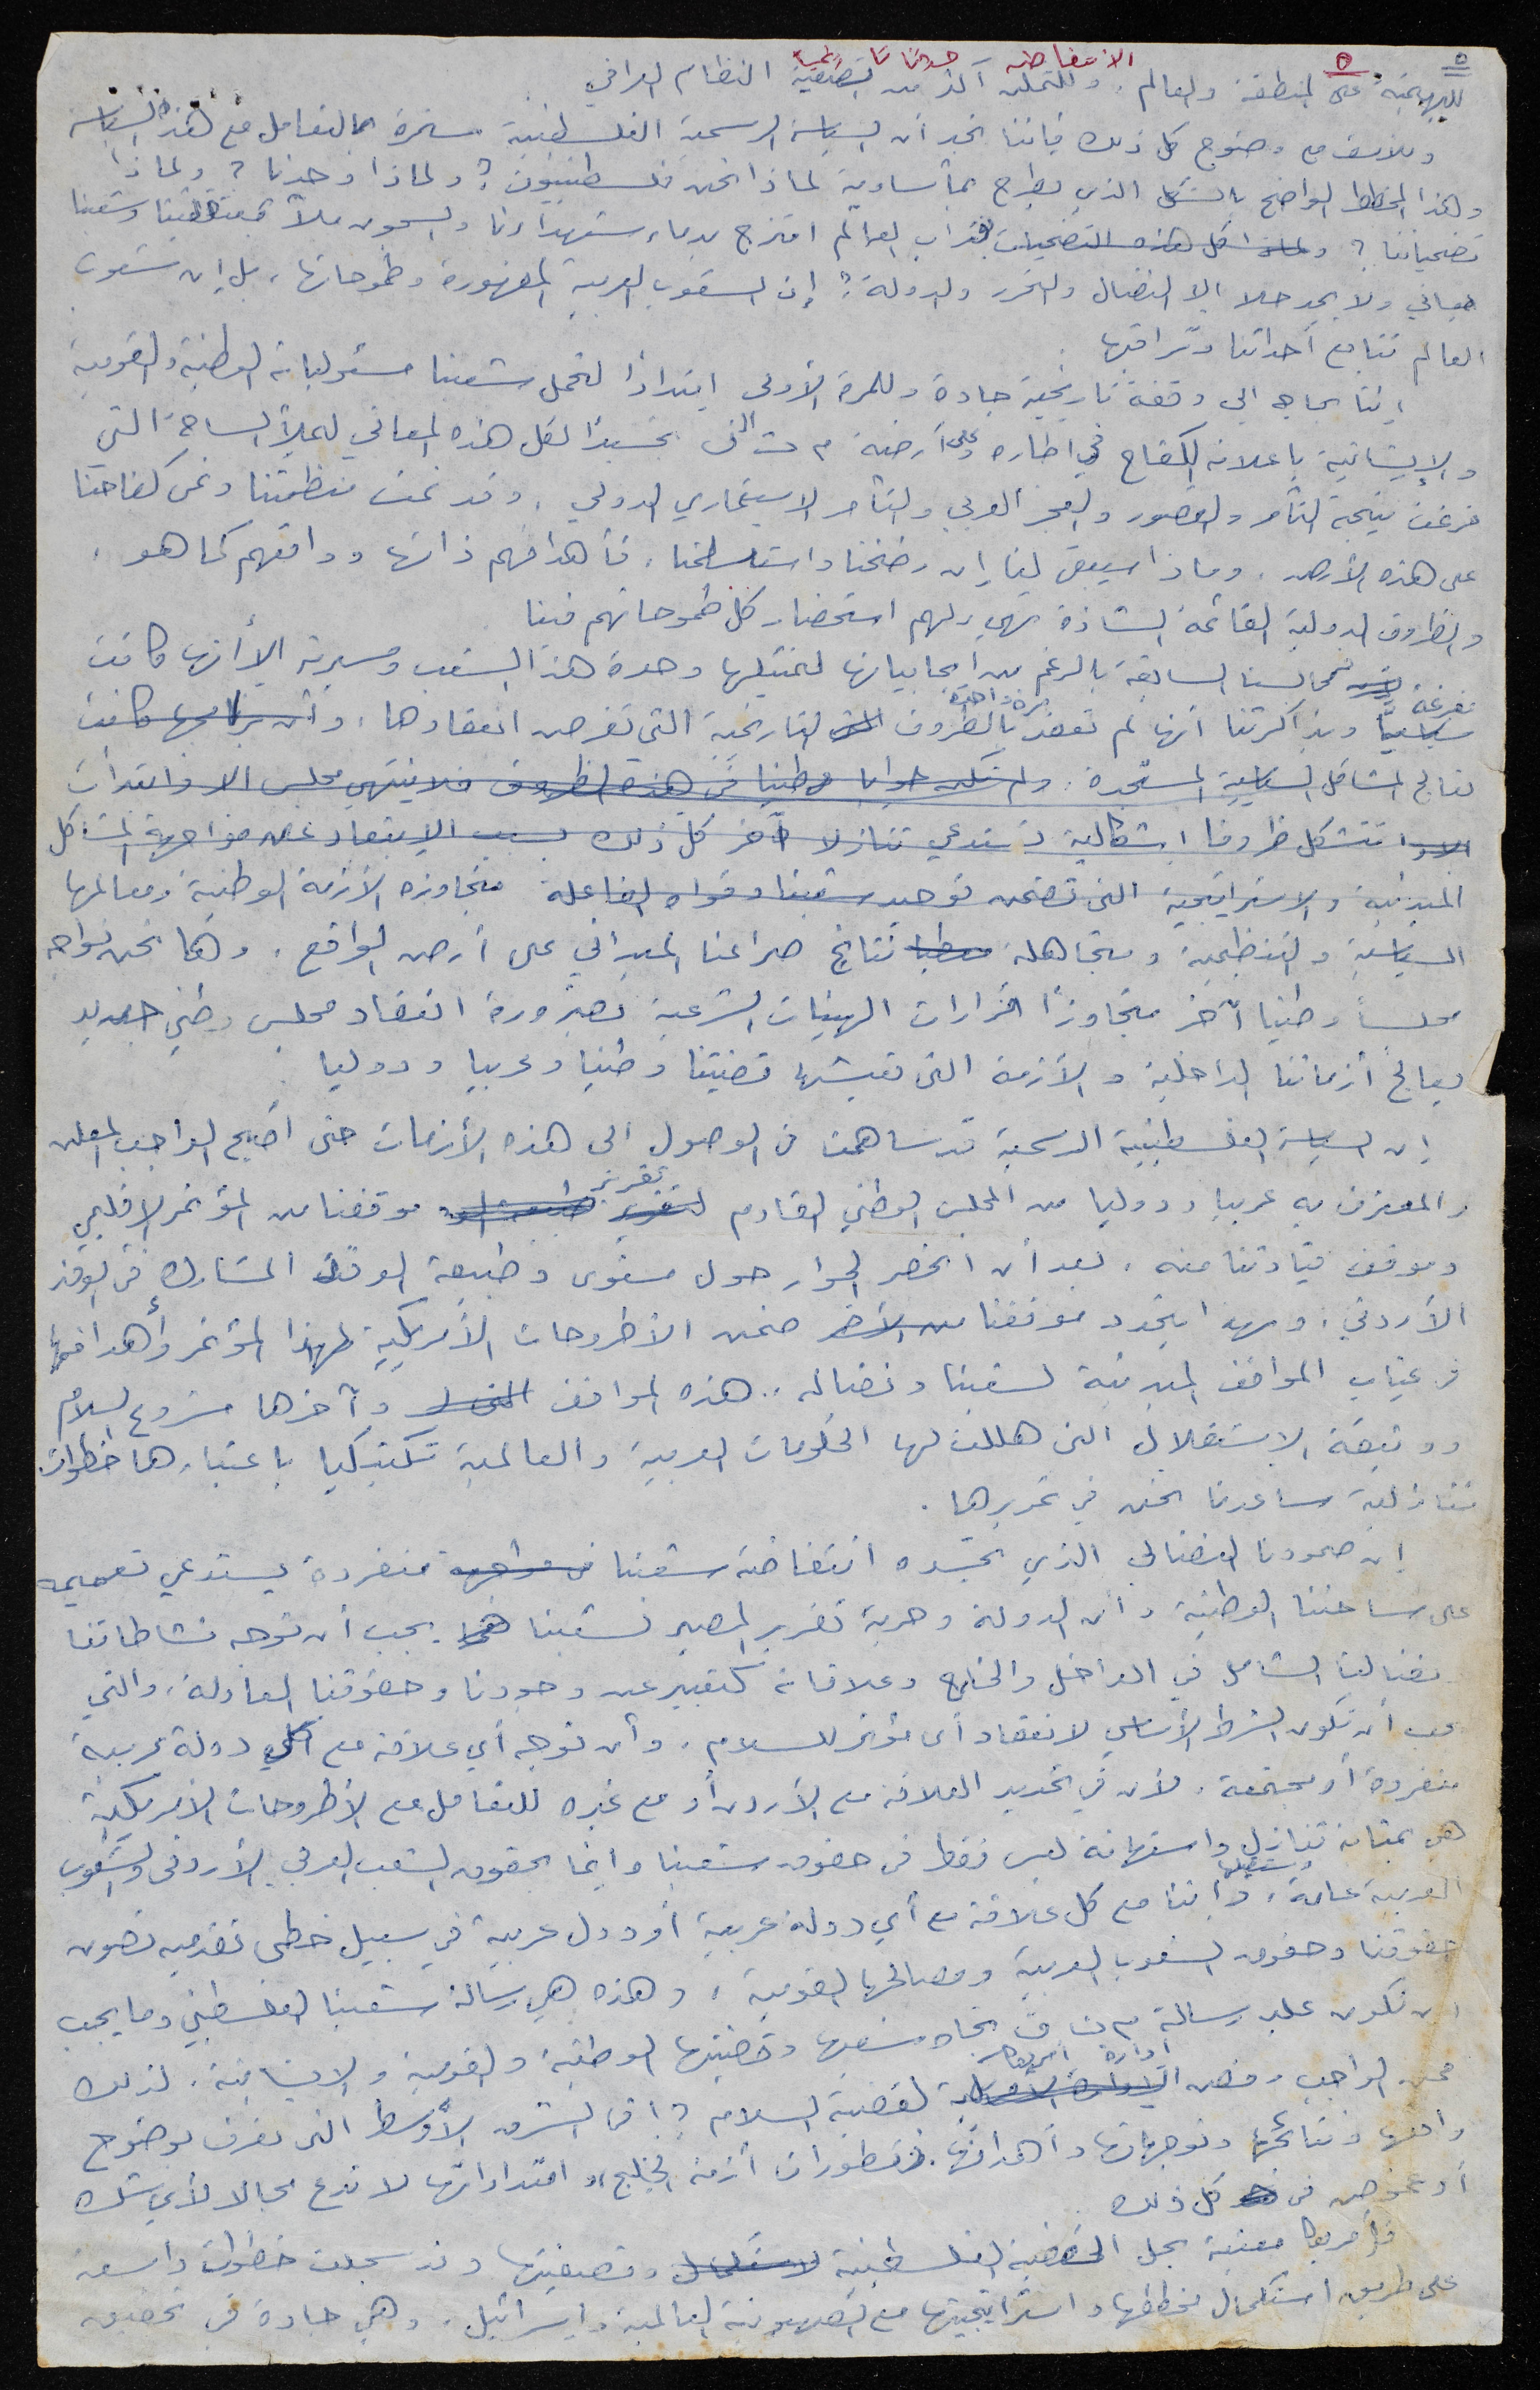 ٥ ٥
الانتفاضة
للهيمنة على المنطقة والعالم، وللتمكن أكثر من تصفية النظام العراقي
وللأسف مع وضوح كل ذلك فإننا نجد أن السياسة الرسمية الفلسطينية مستمرة بالتعامل مع هذه السياسة
وهذا المخطط الواضح بالشكل الذي يطرح بمأساوية لماذا نحن فلسطينيون؟ ولماذا وحدنا؟ ولماذا
تضحياتنا؟ ولماذا كل هذه التضحيات فتراب العالم امتزج بدماء شهداءنا والسجون ملأى وشعبنا
يعاني ولا يجد حلا إلا النضال والتحرر والدولة؟ إن الشعوب العربية المقهورة وطموحاتها، بل إن شعوب
العالم تتابع أحداثنا وتراقبها
إننا بحاجة إلى وقفة تاريخية جادة وللمرة الأولى ابتداءا لتحمل شعبنا مسئولياته الوطنية والقومية
والإنسانية باعلانه الكفاح في اطاره وعلى أرضية م ت ف تجسيدا لكل هذه المعاني ليملأ الساحة التي
فرغت نتيجة التآمر والقصور والعجز العربي والتآمر الاستعماري الدولي، وقد نمت منظمتنا ونمى كفاحنا
على هذه الأرض، وماذا سيبقى لنا إن رضخنا واستسلمنا، فأهدافهم ذاتها وواقعهم كما هو،
والظروف الدولية القائمة الشاذة تهيء لهم استحضار كل طموحاتهم فينا
فمجالسنا السابقة بالرغم من ايجابياتها لتمثيلها وحدة هذا الشعب ومسيرته إلا أنها كانت مفرغة
سياسيا وبذاكرتنا أنها لم تعقد مرة واحدة بالظروف التاريخية التي تفرض انعقادها، وأن برامجها كانت
تعالج المشاكل السياسية المستجدة، ولم تكن جوابا وطنيا في هذه الظروف فلا ينتهي مجلس الا وابتدأت
تتشكل ظروفا اشكالية تستدعي تنازلا آخر كل ذلك بسبب الابتعاد عن مواجهة المشاكل
المبدئية والاستراتيجية التي تضمن توحيد شعبنا وقواه الفاعلة متجاوزة الأزمة الوطنية ومعالمها
السياسية والتنظيمية ومتجاهلة نتائج صراعنا الميداني على أرض الواقع، وها نحن نواجه
مجلسا وطنيا آخر متجاوزا قرارات الهيئات الشرعية بضرورة انعقاد مجلس وطني جديد
يعالج أزماتنا الداخلية والأزمة التي تعيشها قضيتنا وطنيا وعربيا ودوليا
إن السياسة الفلسطينية الرسمية قد ساهمت في الوصول الى هذه الأزمات حتى أصبح الواجب المعلن
والمعترف به عربيا ودوليا من المجلس الوطني القادم تقرير موقفنا من المؤتمر الإقليمي
وموقف قيادتنا منه، بعد أن انحصر الحوار حول مستوى وطبيعة الوفد المشارك في الوفد
الأردني، وبهذا يتحدد موقفنا ضمن الأطروحات الأمريكية لهذا المؤتمر وأهدافها
في غياب المواقف المبدئية لشعبنا ونضاله.. هذه المواقف وآخرها مشروع السلام
ووثيقة الاستقلال التي هللت لها الحكومات العربية والعالمية تكتيكيا باعتبارها خطوات
تنازلية ساعدنا نحن في تمريرها.
إن صمودنا النضالي الذي تجسده انتفاضة شعبنا منفردة يستدعي تعميمه
على ساحتنا الوطنية وأن الدولة وحرية تقرير المصير لشعبنا يجب أن توجه نشاطاتنا
نضالنا الشامل في الداخل والخارج وعلاقاته كتعبير عن وجودنا وحقوقنا العادلة، والتي
يجب أن تكون الشرط الأساسي لانعقاد أي مؤتمر للسلام، وأن توجه أي علاقة مع دولة عربية
منفردة أو مجتمعة، لأن في تحديد العلاقة مع الأردن أو مع غيره للتعامل مع الأطروحات الأمريكية
هي بمثابة تنازل واستهانة ليس فقط في حقوق شعبنا وإنما بحقوق الشعب العربي الأردني والشعوب
العربية عامة، وإننا مع كل علاقة مع أي دولة عربية أو دول عربية في سبيل خطى تقدمية تصون
حقوقنا وحقوق الشعوب العربية ومصالحها القومية، وهذه هي رسالة شعبنا الفلسطيني وما يجب
أن تكون عليه رسالة م ت ف تجاه شعبها وقضيتها الوطنية والقومية والانسانية، لذلك
فمن الواجب رفض ادارة أمريكا لقضية السلام؟! في الشرق الأوسط التي نعرف بوضوح
واقعها ونتائجها وتوجهاتها وأهدافها. فتطورات أزمة الخليج، وامتداداتها لا تدع مجالا لأي شك
أو غموض في كل ذلك
فأمريكا معنية بحل القضية الفلسطينية وتصفيتها وقد سجلت خطوات واسعة
على طريق استكمال مخططها واستراتيجيتها مع الصهيونية العالمية وإسرائيل، وهي جادة في تحقيق